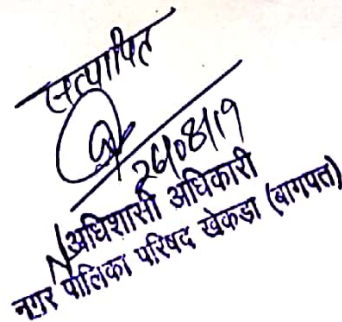 सत्यापित
26/08/19
अधिशासी अधिकारी
नगर पालिका परिषद खेकडा (बागपत)